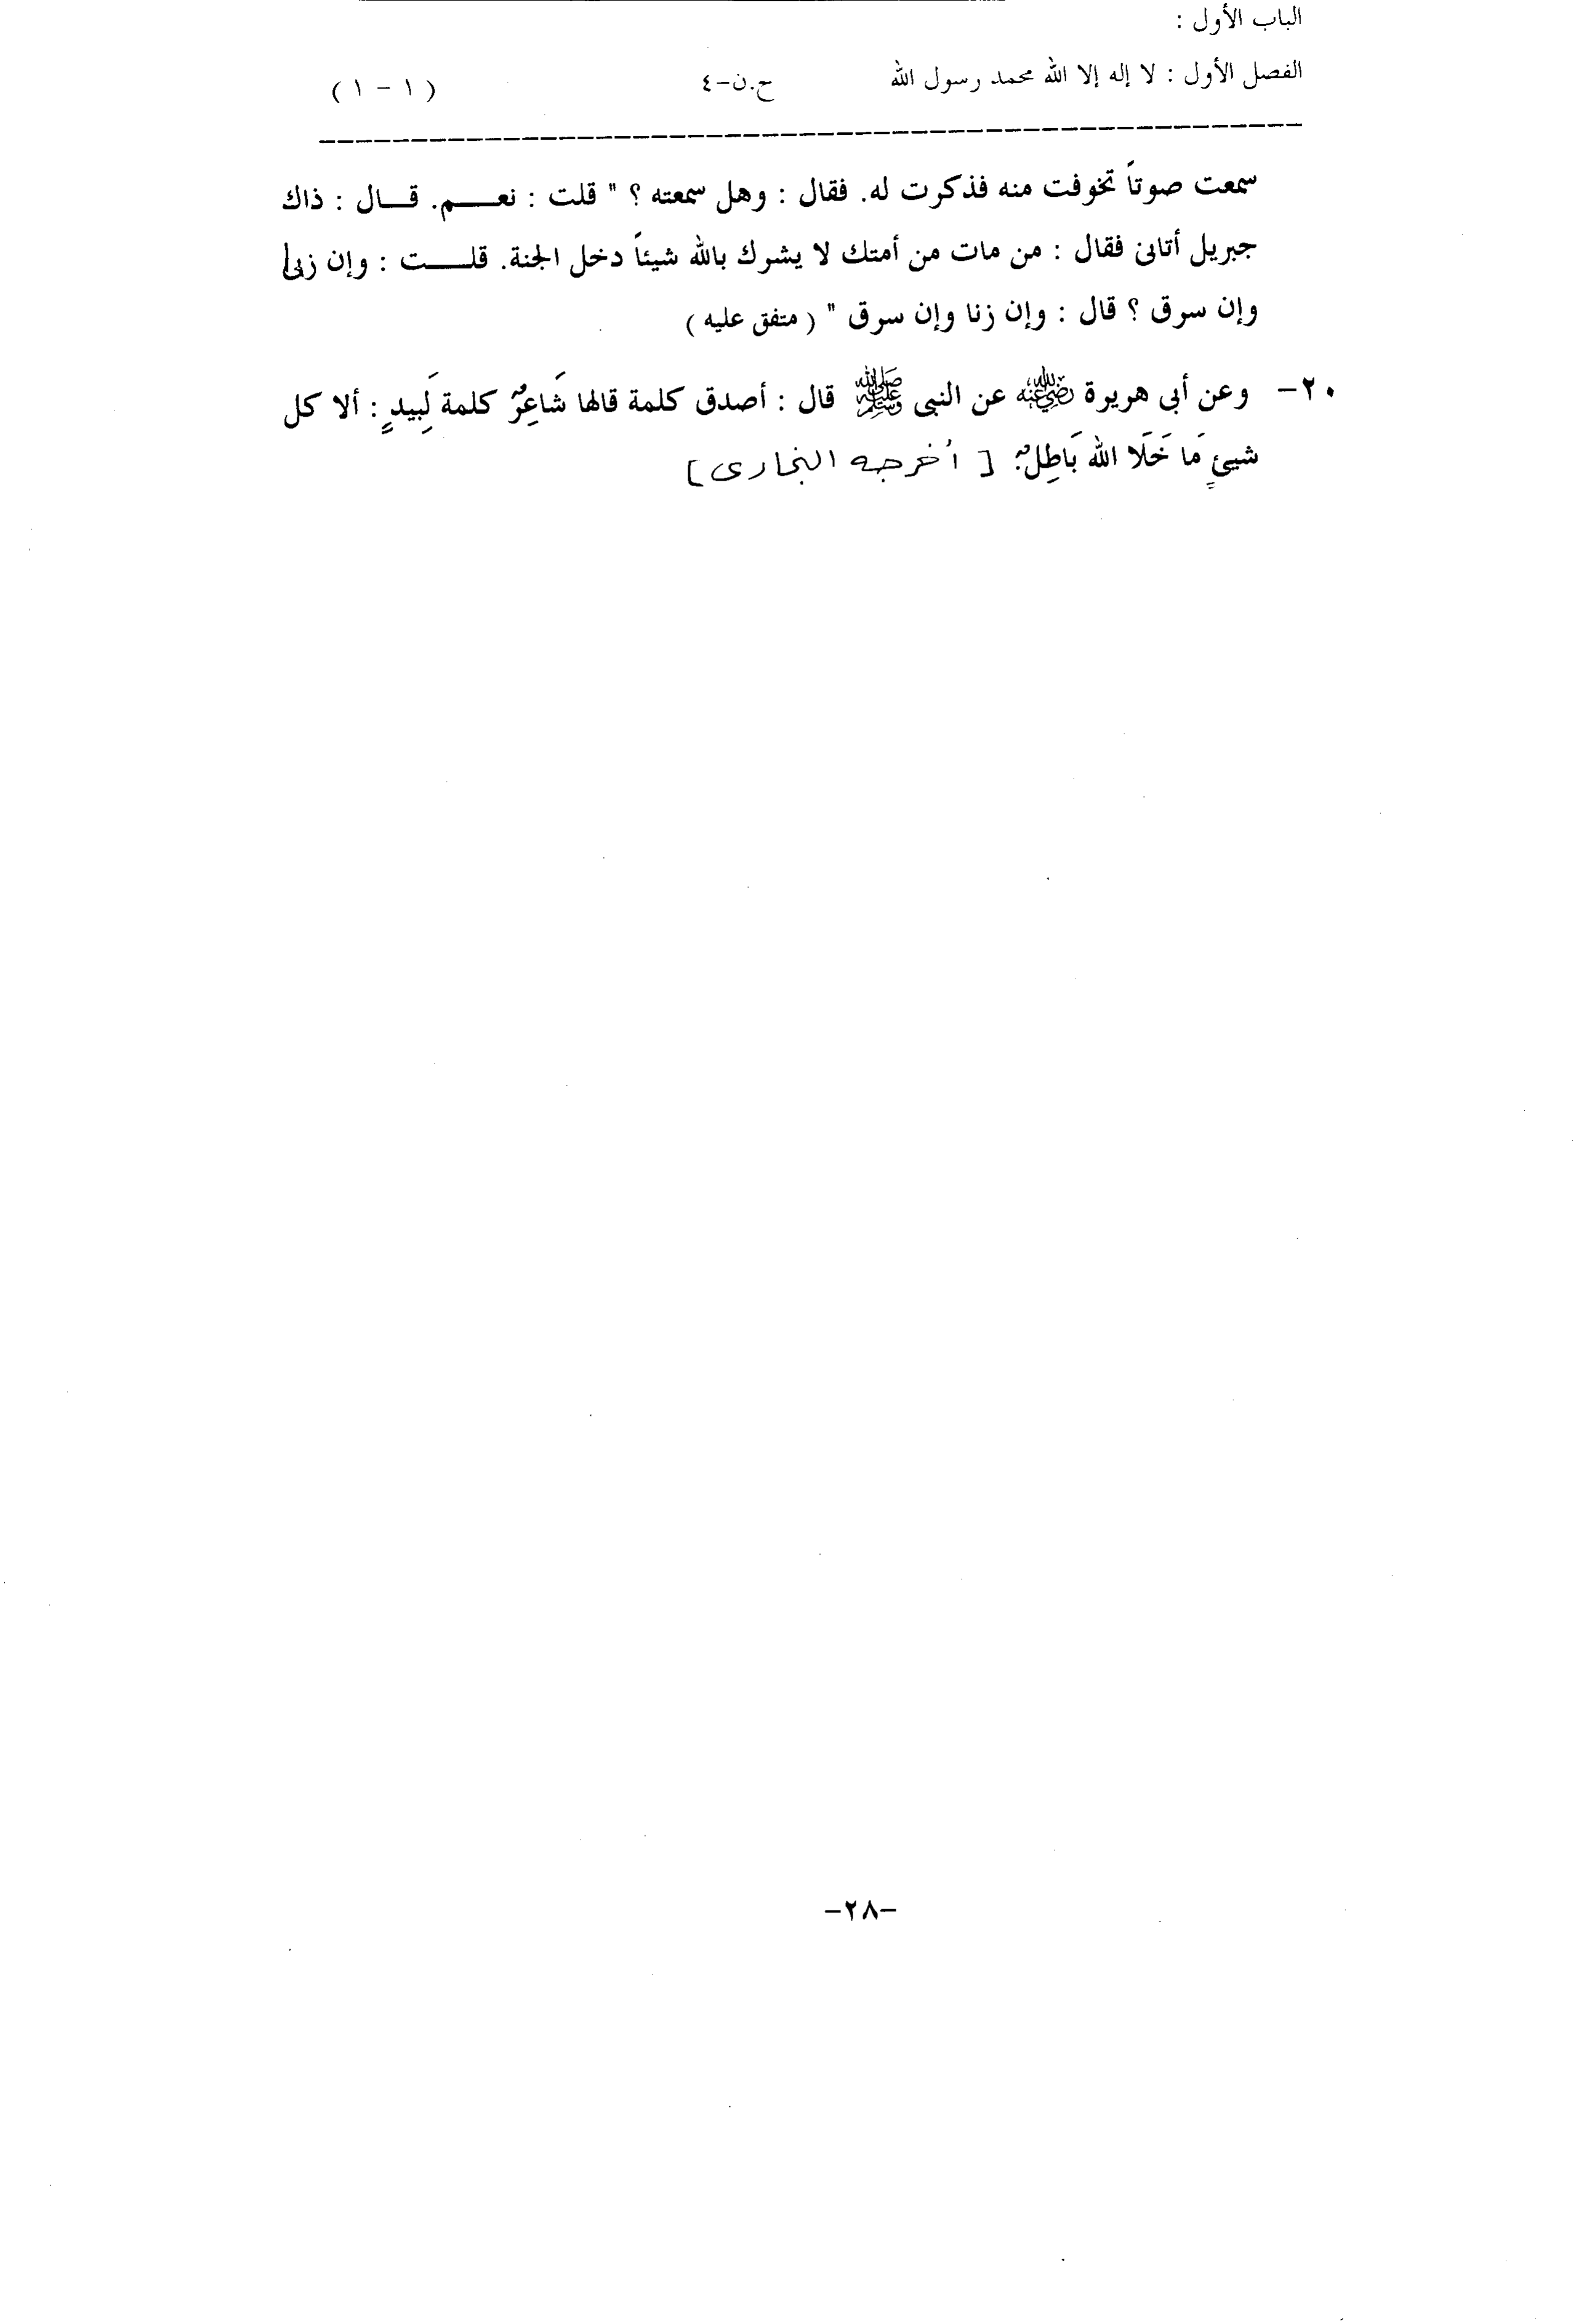 الباب الأول :
الفصل الأول : لا إله إلا الله محمد رسول الله ح.ن-٤ ( ١ - ١ )
سمعت صوتاً تخوفت منه فذكرت له. فقال : وهل سمعته ؟ " قلت : نعـــم. قـــال : ذاك
جبريل أتانى فقال : من مات من أمتك لا يشرك بالله شيئاً دخل الجنة. قلـــت : وإن زنى
وإن سرق ؟ قال : وإن زنا وإن سرق " ( متفق عليه )
٢٠- وعن أبى هريرة رضي الله عنه عن النبى ﷺ قال : أصدق كلمة قالها شَاعِرٌ كلمة لَبِيدٍ : ألا كل
شيئٍ مَا خَلَا الله بَاطِلٌ. [ أخرجه البخارى ]
-٢٨-